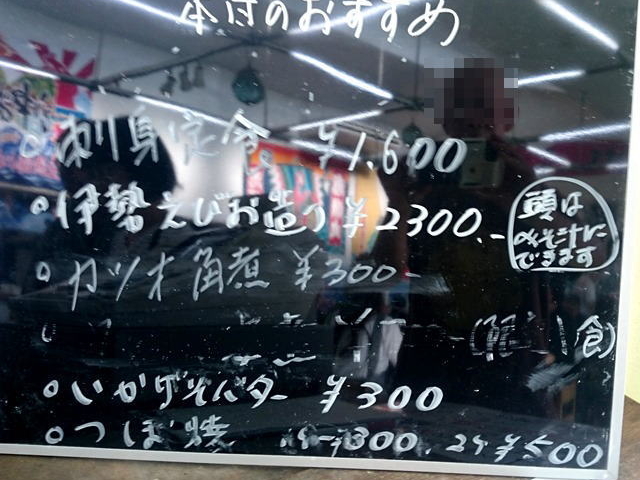 本日のおすすめ
○刺身定食 ¥1,600
○伊勢えびお造り ¥2300.-
頭は
みそ汁に
できます
○カツオ角煮 ¥300-
食)
○いかげそバター ¥300
○つぼ焼 300. 2ケ¥500